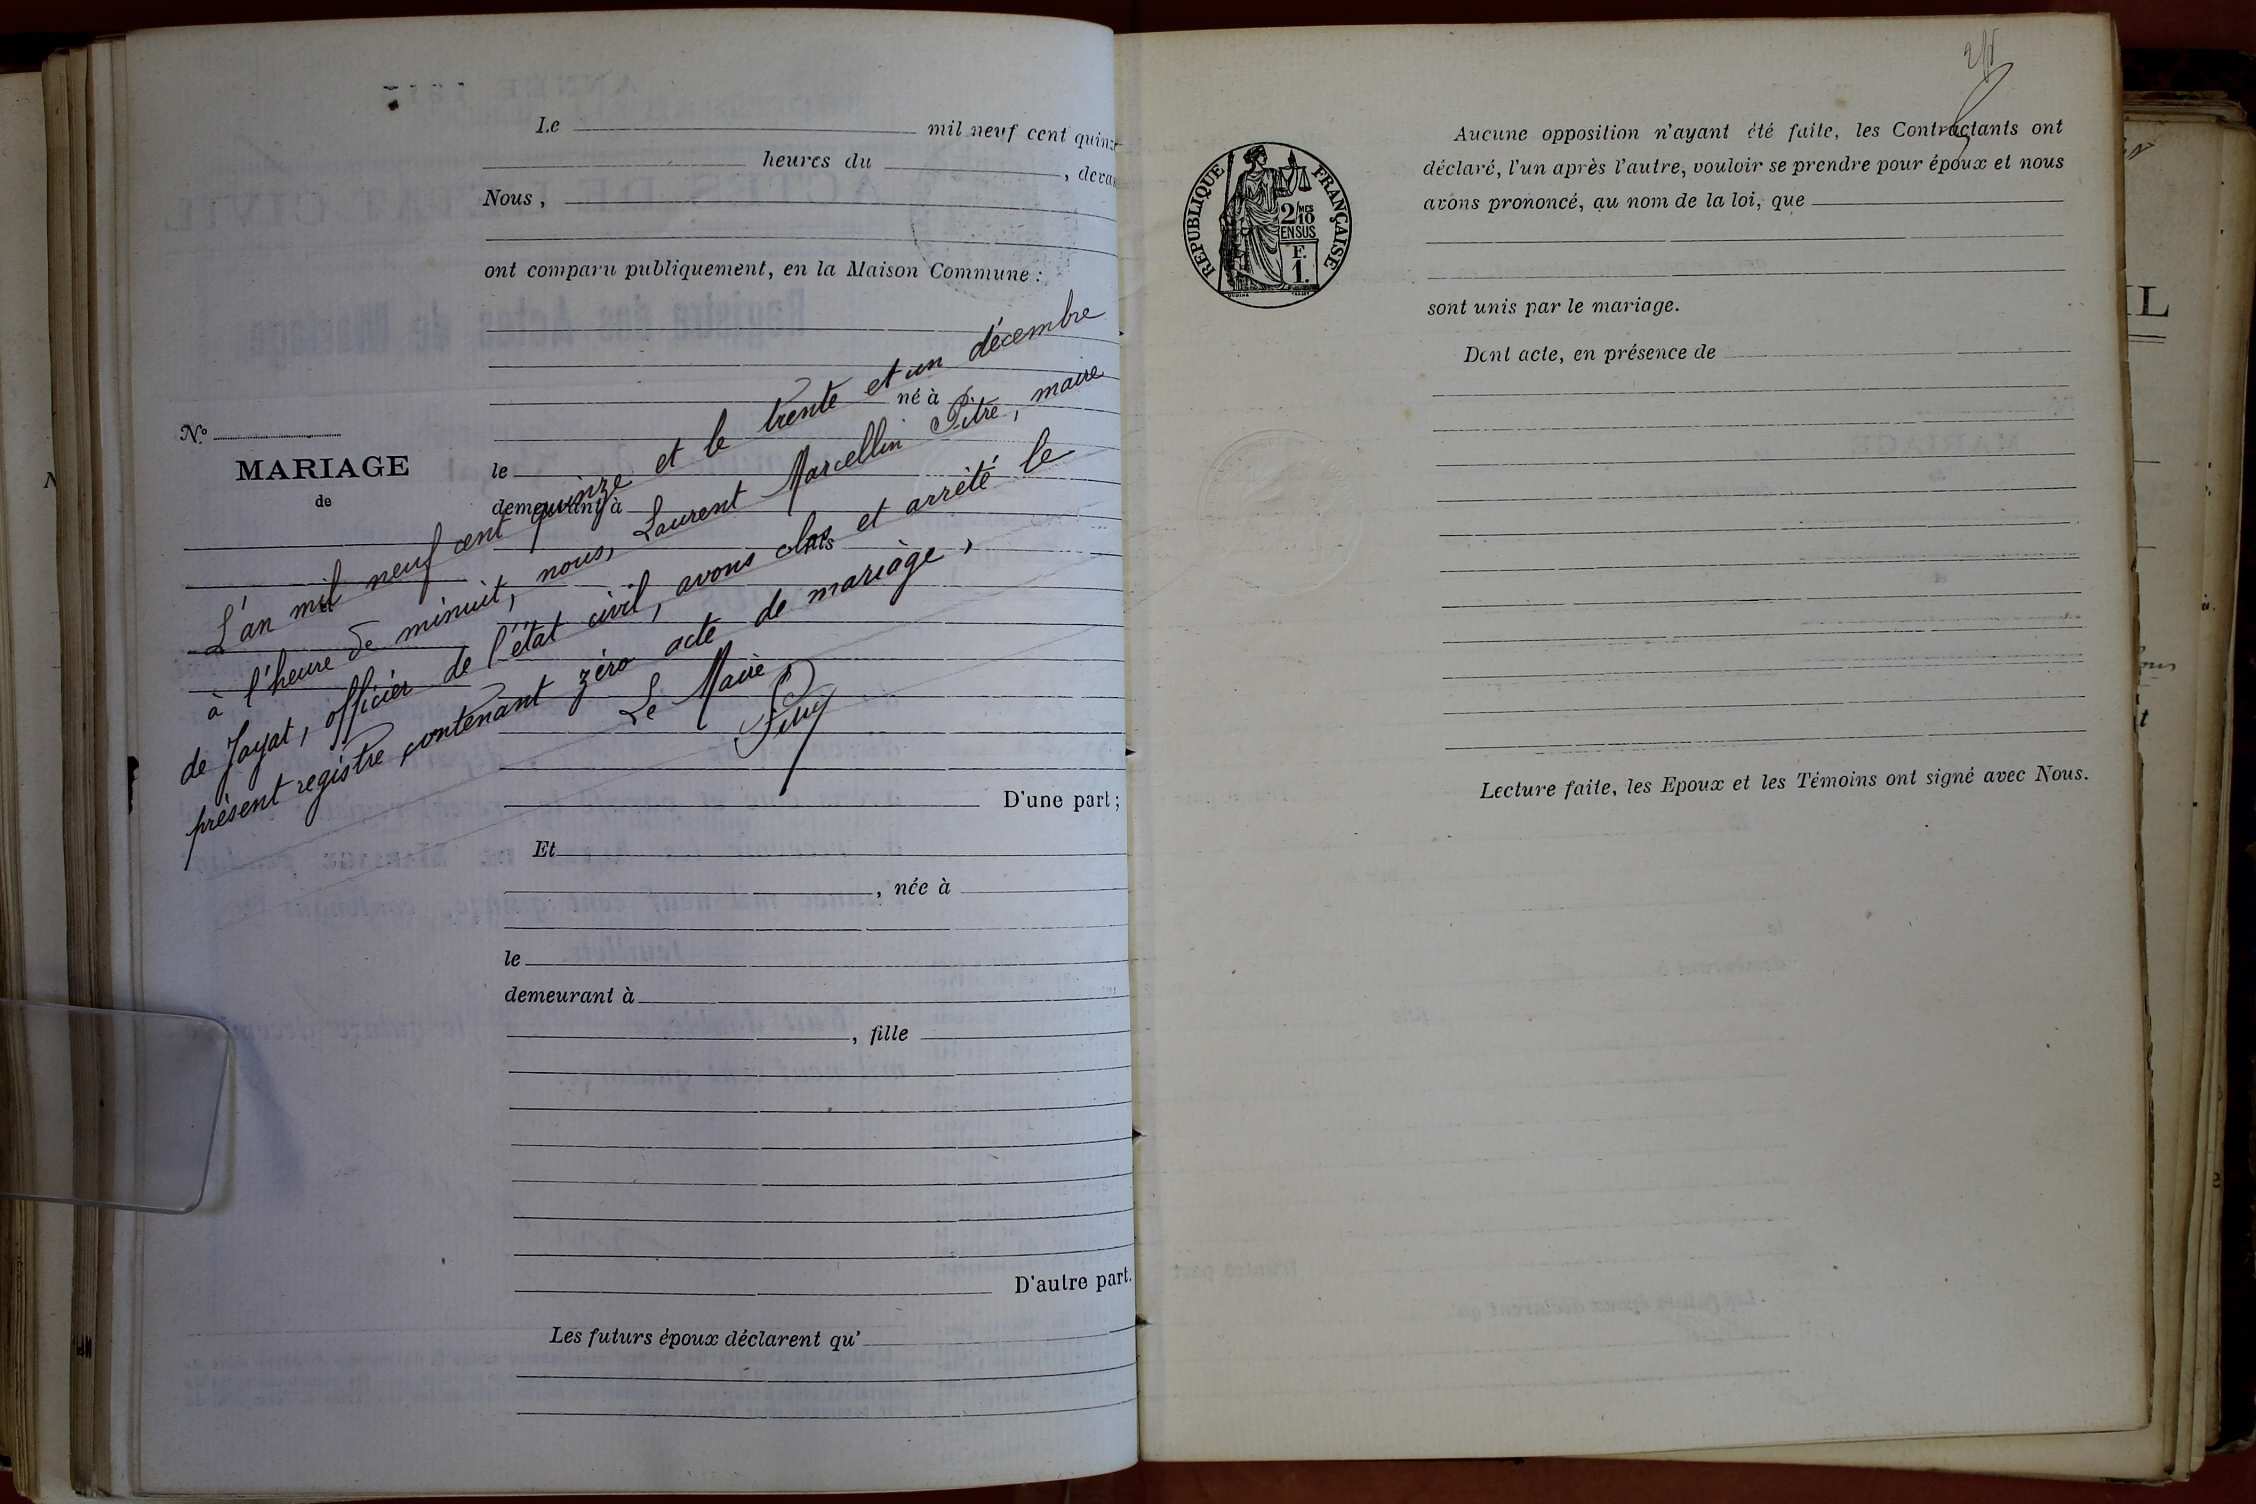 Le mil neuf cent quinze
heures du , deva
Nous ,
ont comparu publiquement, en la Maison Commune :
né à
N.º
MARIAGE
de
le
demeurant à
fils
L'an mil neuf cent quinze et le trente et un décembre
à l'heure de minuit, nous, Laurent Marcellin Pitre, maire
de Jayat, officier de l'état civil, avons clos et arrêté le
présent registre contenant zéro acte de mariage,
Le Maire
D'une part ;
Et
, née à
le
demeurant à
, fille
D'autre part.
Les futurs époux déclarent qu'
REPUBLIQUE FRANÇAISE
2/10 MES
EN SUS
F.
1.
Aucune opposition n'ayant été faite, les Contractants ont
déclaré, l'un après l'autre, vouloir se prendre pour époux et nous
avons prononcé, au nom de la loi, que
sont unis par le mariage.
Dont acte, en présence de
Lecture faite, les Epoux et les Témoins ont signé avec Nous.